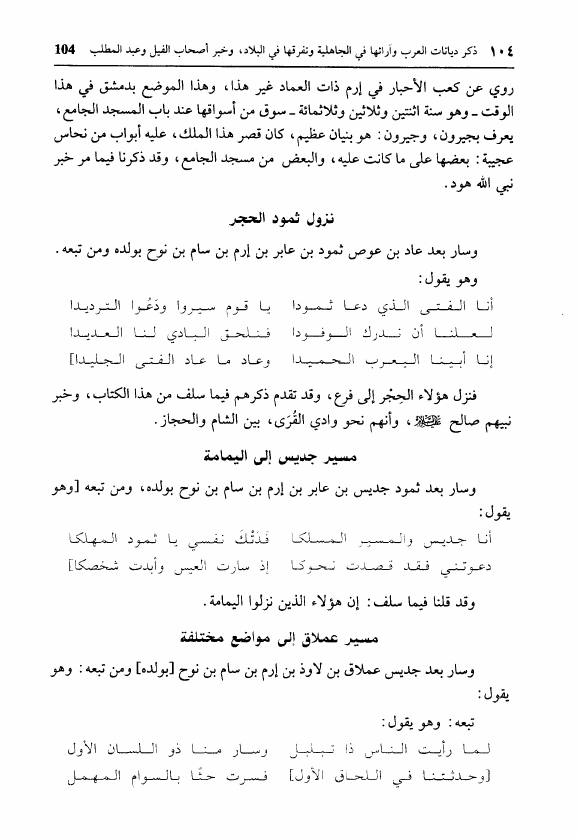 ١٠٤ ذكر ديانات العرب وآرائها في الجاهلية وتفرقها في البلاد، وخبر أصحاب الفيل وعبد المطلب 104
روي عن كعب الأحبار في إرم ذات العماد غير هذا، وهذا الموضع بدمشق في هذا
الوقت ـ وهو سنة اثنتين وثلاثين وثلاثمائة ـ سوق من أسواقها عند باب المسجد الجامع،
يعرف بجيرون، وجيرون: هو بنيان عظيم، كان قصر هذا الملك، عليه أبواب من نحاس
عجيبة: بعضها على ما كانت عليه، والبعض من مسجد الجامع، وقد ذكرنا فيما مر خبر
نبي الله هود.
نزول ثمود الحجر
وسار بعد عاد بن عوص ثمود بن عابر بن إرم بن سام بن نوح بولده ومن تبعه.
وهو يقول:
أنا الفتى الذي دعا ثمودا يا قوم سيروا ودَعُوا الترديدا
لعلنا أن ندرك الوفودا فنلحق البادي لنا العديدا
إنا أبينا اليعرب الحميدا وعاد ما عاد الفتى الجليدا]
فنزل هؤلاء الحِجْر إلى فرع، وقد تقدم ذكرهم فيما سلف من هذا الكتاب، وخبر
نبيهم صالح ﷺ، وأنهم نحو وادي القُرَى، بين الشام والحجاز.
مسير جديس إلى اليمامة
وسار بعد ثمود جديس بن عابر بن إرم بن سام بن نوح بولده، ومن تبعه [وهو
يقول:
أنا جديس والمسير المسلكا فَدَتْكَ نفسي يا ثمود المهلكا
دعوتني فقد قصدت نحوكا إذ سارت العيس وأبدت شخصكا]
وقد قلنا فيما سلف: إن هؤلاء الذين نزلوا اليمامة.
مسير عملاق إلى مواضع مختلفة
وسار بعد جديس عملاق بن لاوذ بن إرم بن سام بن نوح [بولده] ومن تبعه: وهو
يقول:
تبعه: وهو يقول:
لما رأيت الناس ذا تبلبل وسار منا ذو اللسان الأول
[وحدثتنا في اللحاق الأول] فسرت حثًا بالسوام المهمل